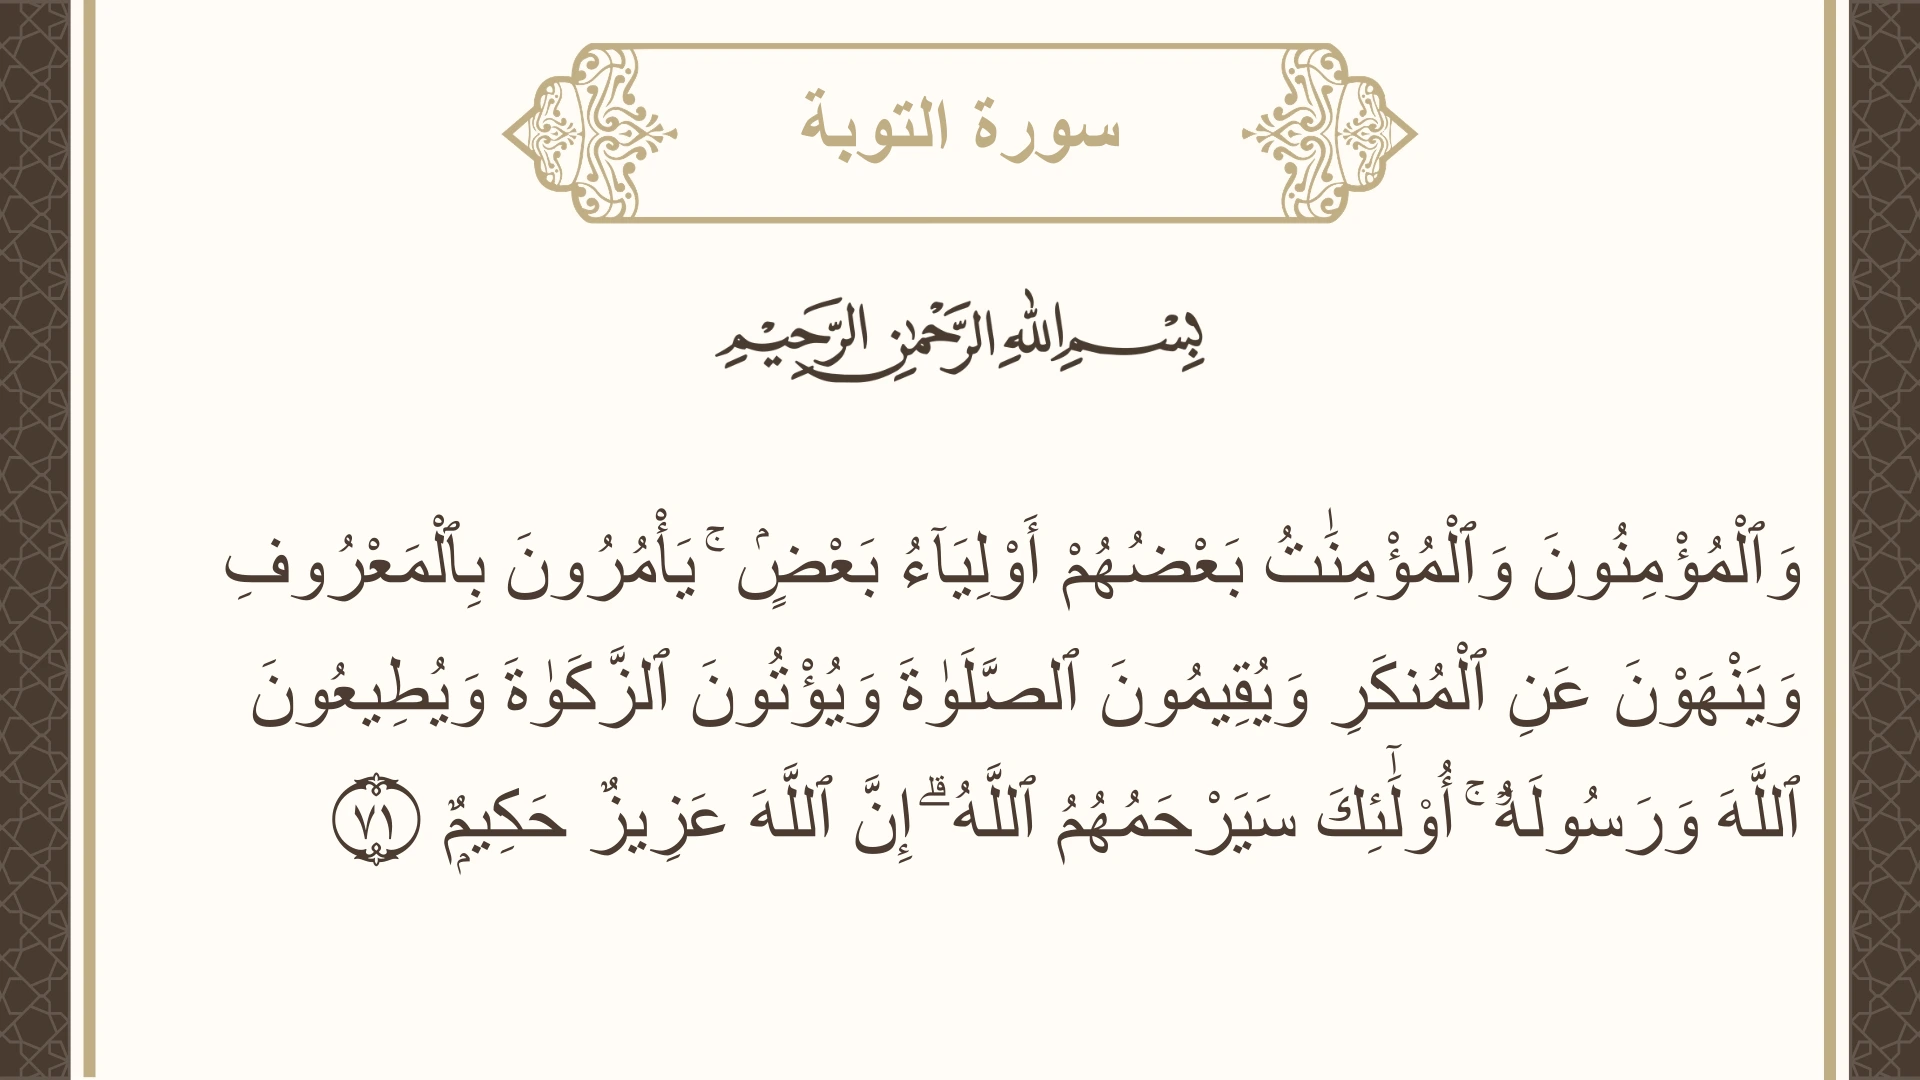 سورة التوبة
بِسْمِ اللهِ الرَّحْمٰنِ الرَّحِيْمِ
وَٱلْمُؤْمِنُونَ وَٱلْمُؤْمِنَٰتُ بَعْضُهُمْ أَوْلِيَآءُ بَعْضٍۢ ۚ يَأْمُرُونَ بِٱلْمَعْرُوفِ
وَيَنْهَوْنَ عَنِ ٱلْمُنكَرِ وَيُقِيمُونَ ٱلصَّلَوٰةَ وَيُؤْتُونَ ٱلزَّكَوٰةَ وَيُطِيعُونَ
ٱللَّهَ وَرَسُولَهُۥٓ ۚ أُو۟لَٰٓئِكَ سَيَرْحَمُهُمُ ٱللَّهُ ۗ إِنَّ ٱللَّهَ عَزِيزٌ حَكِيمٌۭ ٧١